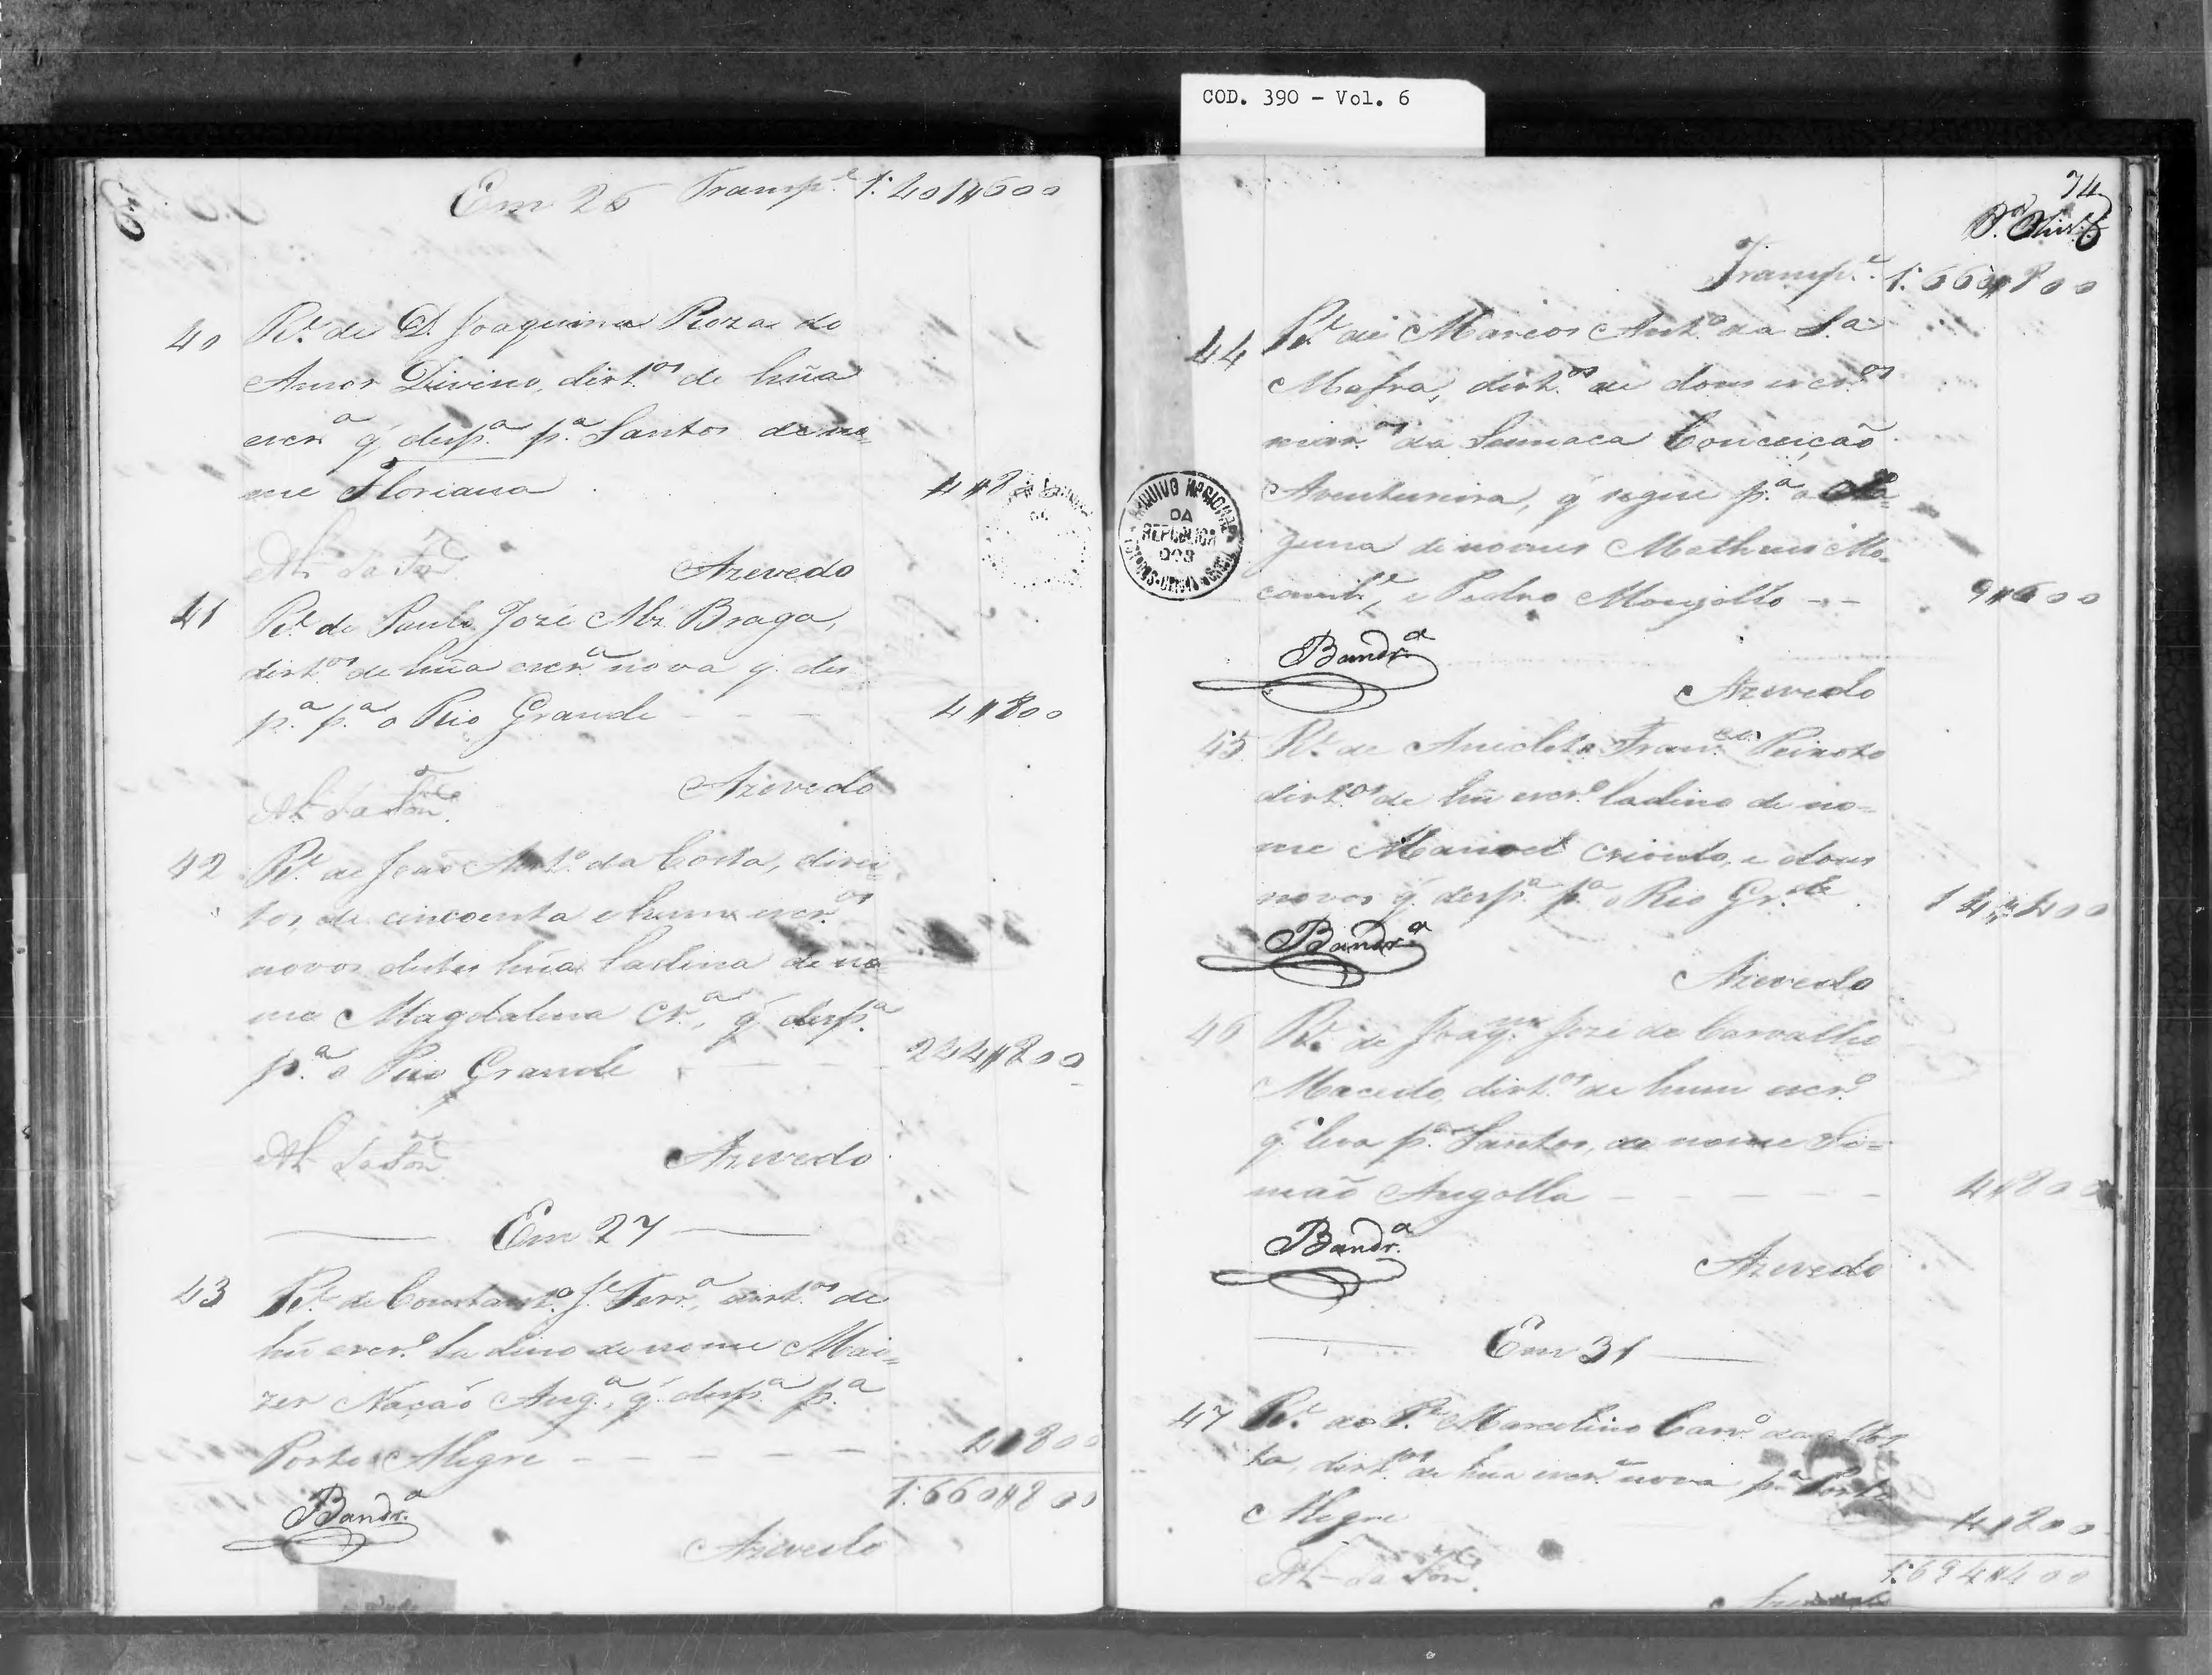 COD. 390 - Vol. 6
Em 26 Transp.e 1:401#600
40 R.e de D. Joaquina Roza do
Amor Divino, dirt.os de hũa
escr.a q' desp.a p.a Santos de no=
me Floriana 4#800
Azevedo
41 R.e de Paulo José Alz Braga,
dirt.os de hũa escr.a nova q. des
p.a p.a o Rio Grande 4#800
Azevedo
42 R.e de João Ant.o da Costa, direi=
tos, de cincoenta e hum escr.os
novos, destes hũa ladina de no=
me Magdalena Cr.a, q. desp.a
p.a o Rio Grande 244#800
Azevedo
Em 27
43 R.e de Constant.o J.e Ferr.a, dirt.os de
hũ escr.o ladino de nome Mai=
zer Nação Ang.a, q. desp.a p.a
Porto Alegre 4#800
1:660#800
Bandr.a
Azevedo
74
Transp.e 1:660#800
44 R.e de Marcos Ant.o da S.a
Mafra, dirt.os de dous escr.os
mar.os da Sumaca Conceição
Aventureira, q' segue p.a a La=
guna de nomes Matheus Mo=
camb.e, e Pedro Monjollo 9#600
Bandr.a
Azevedo
45 R.e de Anicleto Fran.co Peixoto
dirt.os de hũ escr.o ladino de no=
me Manoel crioulo, e dous
novos q. desp.a p.a o Rio Gr.de 14#400
Bandr.a
Azevedo
46 R.e de Joaq.m José de Carvalho
Macedo, dirt.os de hum escr.o
q' leva p.a Santos, de nome Si=
mão Angolla 4#800
Bandr.a
Azevedo
Em 31
47 R.e do P.e Marcelino Carn.o da
ta, dirt.os de hũa escr.a nova p.a Porto
Alegre 4#800
1:694#400
ARQUIVO NACIONAL
DA
REPÚBLICA